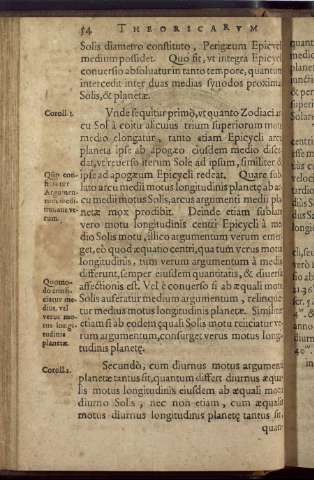 54 THEORICARVM
Solis diametro constituto, Perigæum Epicycli
medium possidet. Quo fit, vt integra Epicycli
conuersio absoluatur in tanto tempore, quantum
intercedit inter duas medias synodos proximas
Solis, & planetæ.
Coroll. 1.
Vnde sequitur primò, vt quanto Zodiaci ar-
cu Sol à coitu alicuius trium superiorum motu
medio elongatur, tanto etiam Epicycli arcu
planeta ipse ab apogæo eiusdem medio disce-
dat, vt reuerso iterum Sole ad ipsum, similiter &
ipse ad apogæum Epicycli redeat. Quare sub-
lato arcu medii motus longitudinis planetę ab ar-
cu medii motus Solis, arcus argumenti medii pla-
netæ mox prodibit. Deinde etiam sublato
vero motu longitudinis centri Epicycli à me-
dio Solis motu, illico argumentum verum emer-
get, eò quod æquatio centri, qua tum verus motus
longitudinis, tum verum argumentum à mediis
differunt, semper eiusdem quantitatis, & diuersæ
affectionis est. Vel è conuerso si ab æquali motu
Solis auferatur medium argumentum, relinque-
tur medius motus longitudinis planetæ. Similiter
etiam si ab eodem ęquali Solis motu reiiciatur ve-
rum argumentum, consurget verus motus longi-
tudinis planetę.
Quomo-
do
medius, vel
verus mo-
tus longi-
tudinis
planetæ.
Coroll. 2.
Secundò, cum diurnus motus argumenti
planetæ tantus sit, quantum differt diurnus æqua-
lis motus longitudinis eiusdem ab æquali motu
diurno Solis, nec non etiam, cum æqualis
motus diurnus longitudinis planetę tantus sit,
quan-